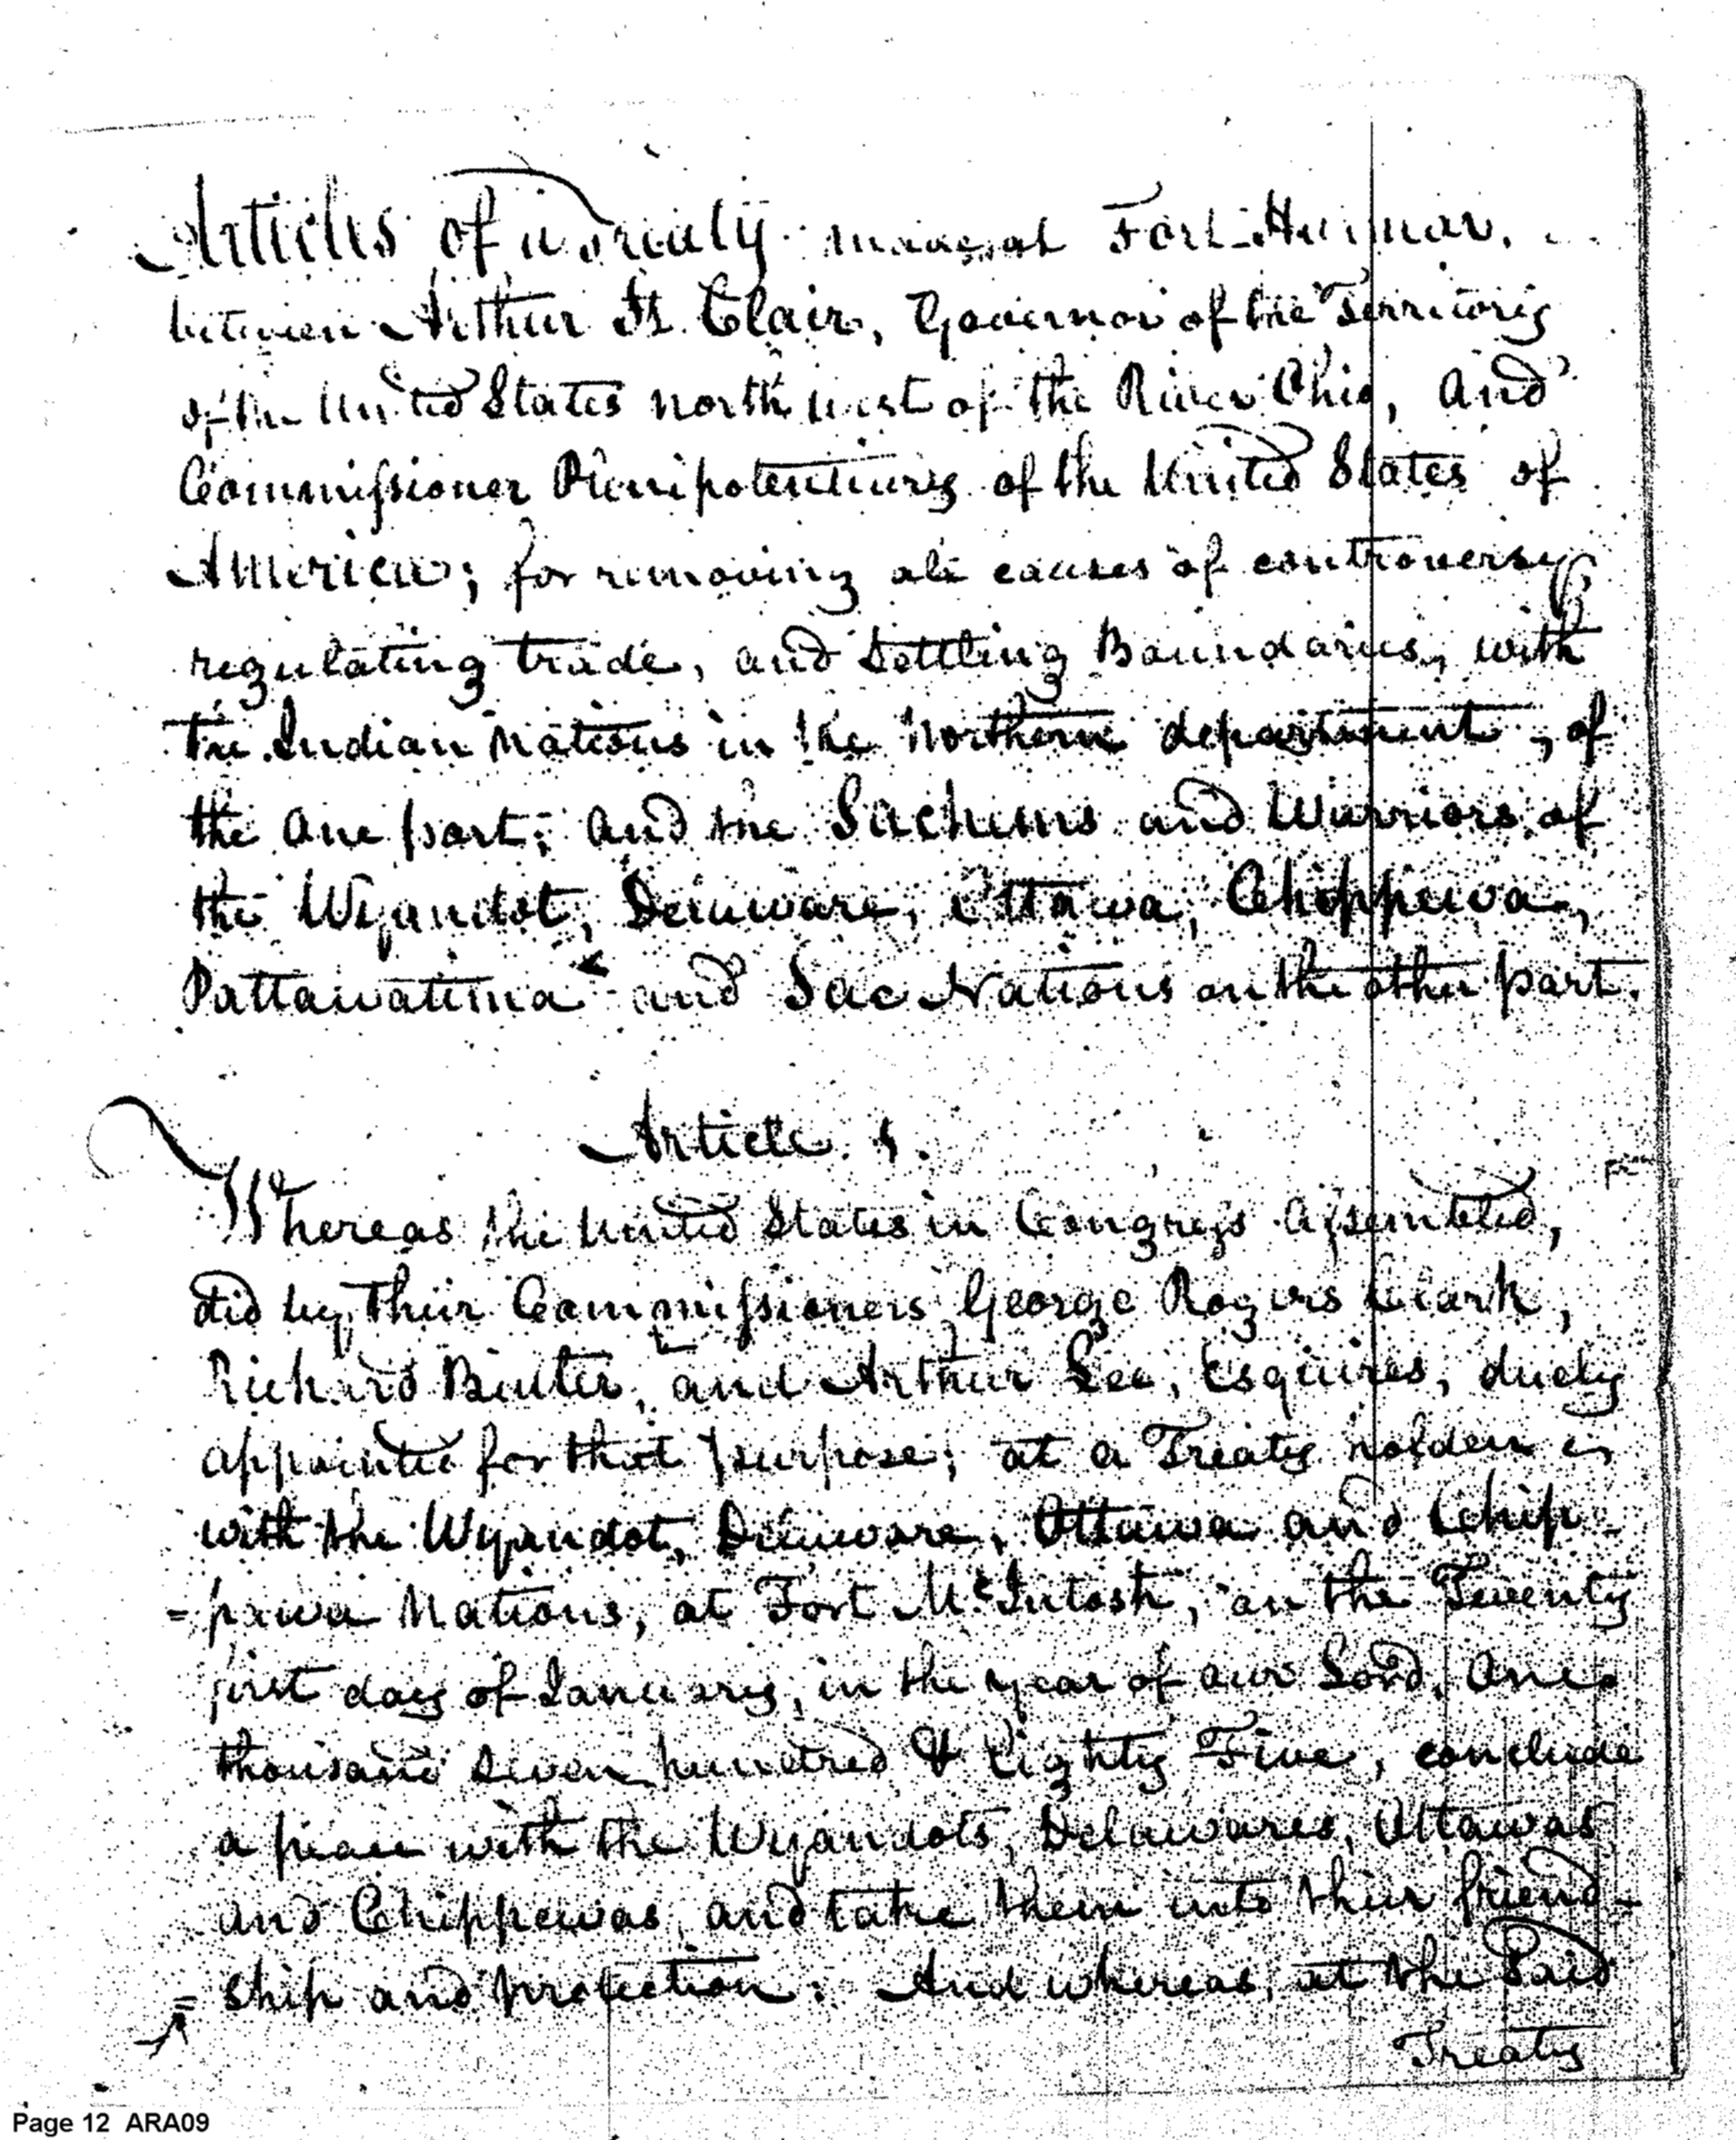 Articles of a Treaty made at Fort Harmar,
between Arthur St. Clair, Governor of the Territory
of the United States north west of the River Ohio, and
Commissioner Plenipotentiary of the United States of
America; for removing all causes of controversy,
regulating trade, and Settling Boundaries, with
the Indian Nations in the Northern department, of
the one part; and the Sachems and Warriors of
the Wyandot, Delaware, Ottawa, Chippewa,
Pattawatima and Sac Nations on the other part.
Article 1.
Whereas the United States in Congress Assembled,
did by their Commissioners George Rogers Clark,
Richard Butler, and Arthur Lee, Esquires, duely
appointed for that purpose; at a Treaty holden
with the Wyandot, Delaware, Ottawa and Chip-
=pawa Nations, at Fort McIntosh, on the Twenty
first day of January, in the year of our Lord, One
thousand Seven hundred & Eighty Five, conclude
a peace with the Wyandots, Delawares, Ottawas
and Chippewas, and take them into their friend-
=ship and protection: And whereas, at the Said
Treaty
Page 12 ARA09